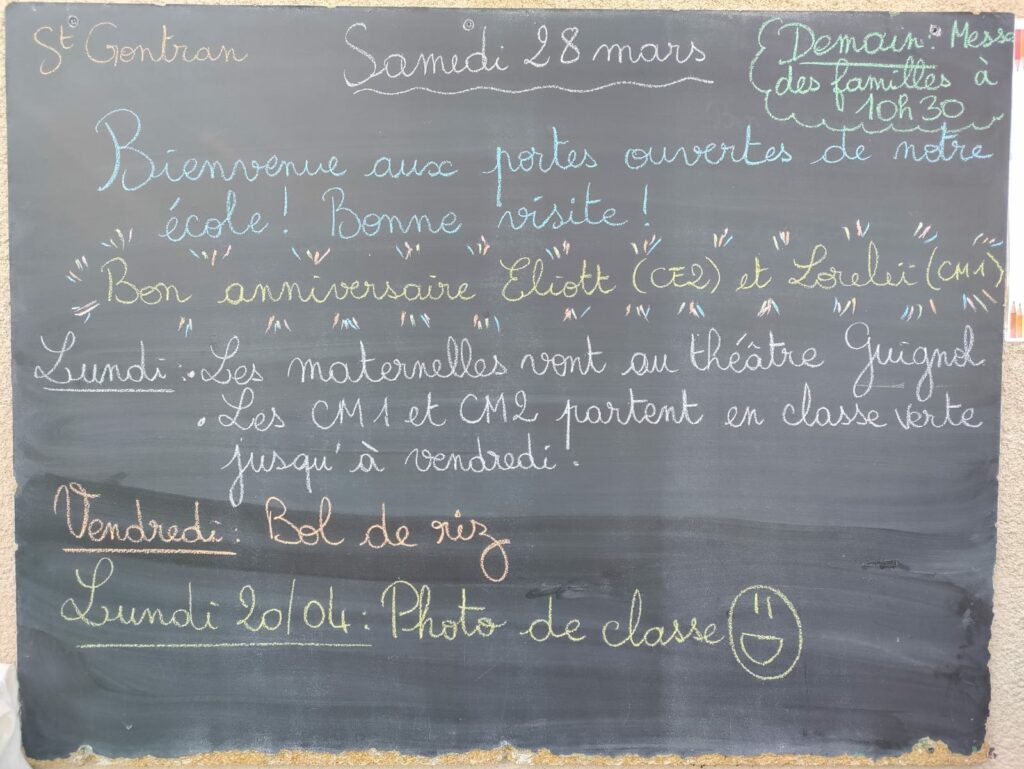 St Gontran
Samedi 28 mars
Demain: Messe
des familles à
10h30
Bienvenue aux portes ouvertes de notre
école! Bonne visite!
Bon anniversaire Eliott (CE2) et Loreleï (CM1)
Lundi: • Les maternelles vont au théâtre Guignol
• Les CM1 et CM2 partent en classe verte
jusqu'à vendredi.
Vendredi: Bol de riz
Lundi 20/04: Photo de classe